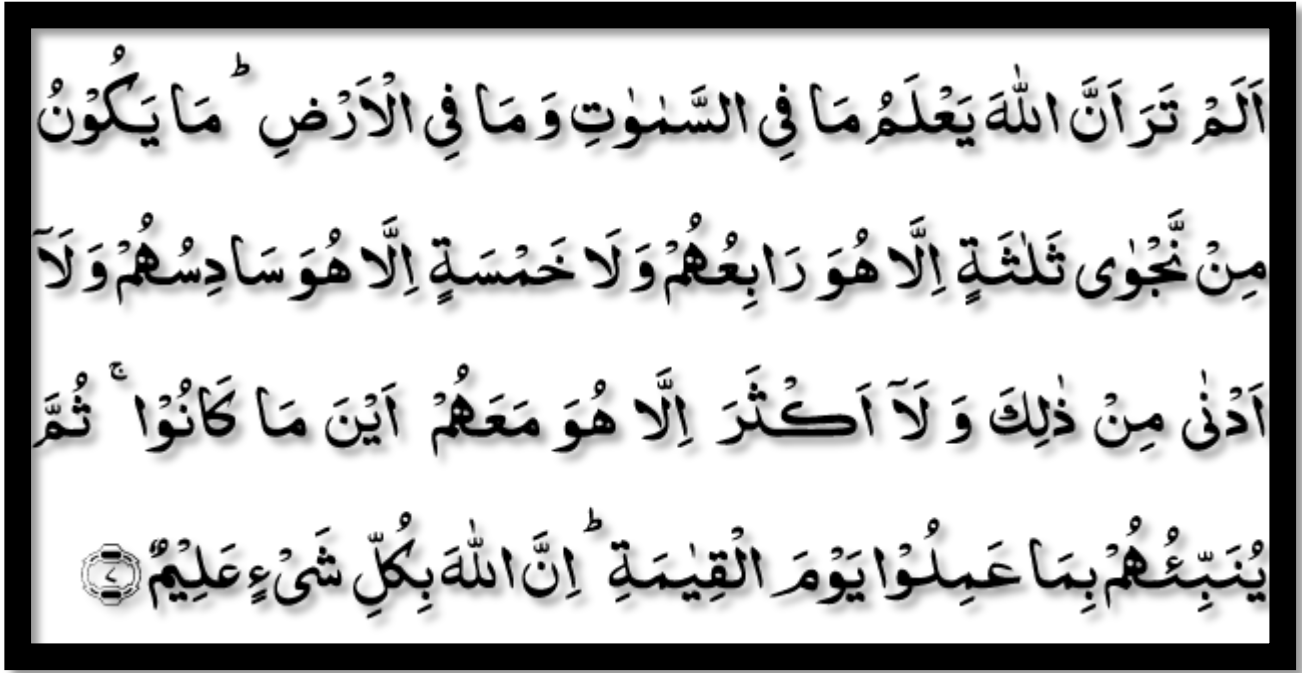 اَلَمْ تَرَ اَنَّ اللّٰهَ يَعْلَمُ مَا فِى السَّمٰوٰتِ وَ مَا فِى الْاَرْضِ ؕ مَا يَكُوْنُ
مِنْ نَّجْوٰى ثَلٰثَةٍ اِلَّا هُوَ رَابِعُهُمْ وَ لَا خَمْسَةٍ اِلَّا هُوَ سَادِسُهُمْ وَ لَاۤ
اَدْنٰى مِنْ ذٰلِكَ وَ لَاۤ اَكْثَرَ اِلَّا هُوَ مَعَهُمْ اَيْنَ مَا كَانُوْا ۚ ثُمَّ
يُنَبِّئُهُمْ بِمَا عَمِلُوْا يَوْمَ الْقِيٰمَةِ ؕ اِنَّ اللّٰهَ بِكُلِّ شَىْءٍ عَلِيْمٌ ۷